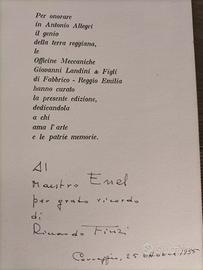 Per onorare
in Antonio Allegri
il genio
della terra reggiana,
le
Officine Meccaniche
Giovanni Landini & Figli
di Fabbrico - Reggio Emilia
hanno curato
la presente edizione,
dedicandola
a chi
ama l'arte
e le patrie memorie.
Al
Maestro Enel
per grato ricordo
di
Riccardo Finzi
Correggio, 25 ottobre 1955
subito